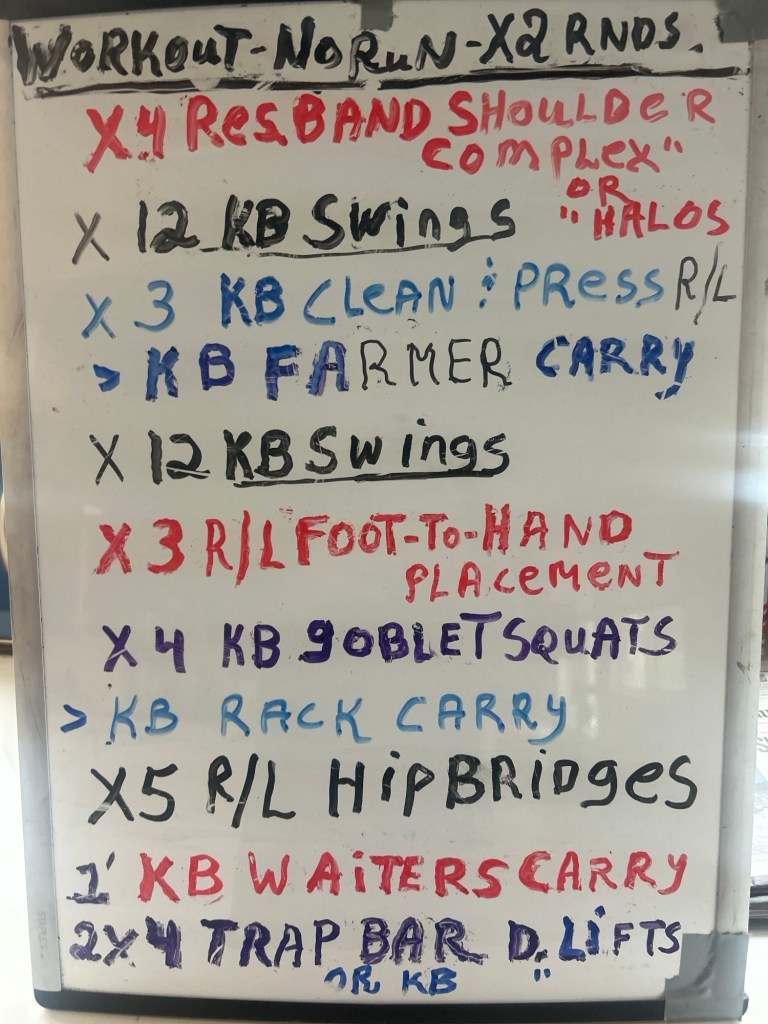 WORKOUT-NO RUN-X2 RNDS.
X4 RES.BAND SHOULDER
COMPLEX"
OR
X 12 KB SWINGS "HALOS
X 3 KB CLEAN & PRESS R/L
> KB FARMER CARRY
X 12 KB SWINGS
X3 R/L FOOT-TO-HAND
PLACEMENT
X4 KB GOBLET SQUATS
> KB RACK CARRY
X5 R/L HIP BRIDGES
1' KB WAITERS CARRY
2X4 TRAP BAR D. LIFTS
OR KB "